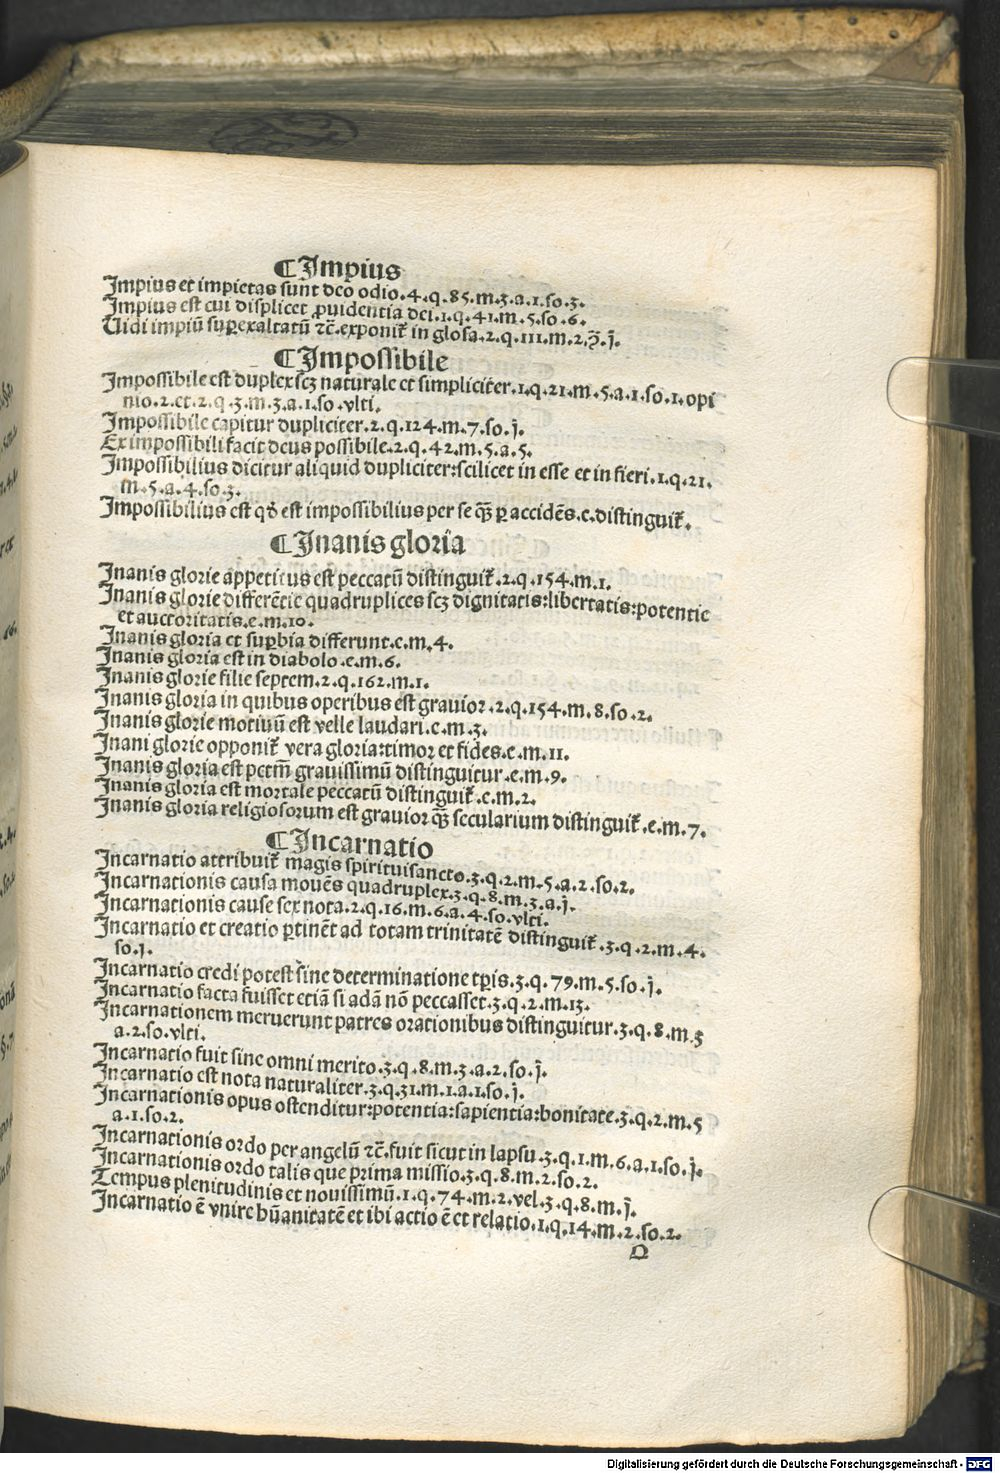 ¶Impius
Impius et impietas sunt deo odio.4.q.85.m.3.a.1.so.3.
Impius est cui displicet ꝓuidentia dei.1.q.41.m.5.so.6.
Uidi impiū suꝑexaltatū ⁊c̄.exponit᷑ in glosa.2.q.111.m.2. j.
¶Impossibile
Impossibile est duplex:scꝫ naturale et simpliciter.1.q.21.m.5.a.1.so.1.opi
nio.2.et.2.q.3.m.3.a.1.so.vlti.
Impossibile capitur dupliciter.2.q.124.m.7.so.j.
Ex impossibili facit deus possibile.2.q.42.m.5.a.5.
Impossibilius dicitur aliquid dupliciter:scilicet in esse et in fieri.1.q.21.
m.5.a.4.so.3.
Impossibilius est qd̓ est impossibilius per se qȝ̄ ꝑ accidēs.e.distinguit᷑.
¶Inanis gloria
Inanis glorie appetitus est peccatū distinguit᷑.2.q.154.m.1.
Inanis glorie differētie quadruplices scꝫ dignitatis:libertatis:potentie
et auctoritatis.e.m.10.
Inanis gloria et suꝑbia differunt.e.m.4.
Inanis gloria est in diabolo.e.m.6.
Inanis glorie filie septem.2.q.162.m.1.
Inanis gloria in quibus operibus est grauior.2.q.154.m.8.so.2.
Inanis glorie motiuū est velle laudari.e.m.3.
Inani glorie opponit᷑ vera gloria:timor et fides.e.m.11.
Inanis gloria est pctm̄ grauissimū distinguitur.e.m.9.
Inanis gloria est mortale peccatū distinguit᷑.e.m.2.
Inanis gloria religiosorum est grauior qȝ̄ secularium distinguit᷑.e.m.7.
¶Incarnatio
Incarnatio attribuit᷑ magis spirituisancto.3.q.2.m.5.a.2.so.2.
Incarnationis causa mouēs quadruplex.3.q.8.m.3.a.j.
Incarnationis cause sex nota.2.q.16.m.6.a.4.so.vlti.
Incarnatio et creatio ꝑtinēt ad totam trinitatē distinguit᷑.3.q.2.m.4.
so.j.
Incarnatio credi potest sine determinatione tꝑis.3.q.79.m.5.so.j.
Incarnatio facta fuisset etiā si adā nō peccasset.3.q.2.m.13.
Incarnationem meruerunt patres orationibus distinguitur.3.q.8.m.3
a.2.so.vlti.
Incarnatio fuit sine omni merito.3.q.8.m.3.a.2.so.j.
Incarnatio est nota naturaliter.3.q.31.m.1.a.1.so.j.
Incarnationis opus ostenditur:potentia:sapientia:bonitate.3.q.2.m.5
a.1.so.2.
Incarnationis ordo per angelū ⁊c̄.fuit sicut in lapsu.3.q.1.m.6.a.1.so.j.
Incarnationis ordo talis que prima missio.3.q.8.m.2.so.2.
Tempus plenitudinis et nouissimū.1.q.74.m.2.vel.3.q.8.m.j.
Incarnatio ē vnire hūanitatē et ibi actio ē et relatio.1.q.14.m.2.so.2.
Digitalisierung gefördert durch die Deutsche Forschungsgemeinschaft - DFG